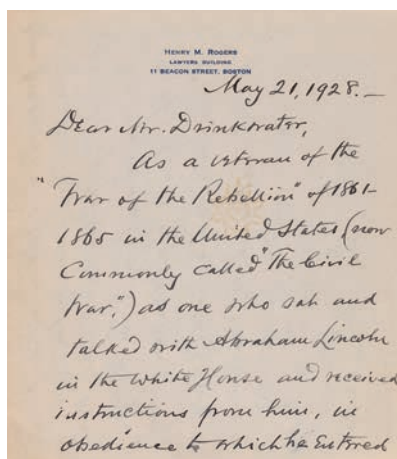 HENRY M. ROGERS
LAWYERS BUILDING
11 BEACON STREET, BOSTON
May 21, 1928.—
Dear Mr. Drinkwater,
As a veteran of the
"War of the Rebellion" of 1861-
1865 in the United States (now
Commonly called "The Civil
War",) as one who sat and
talked with Abraham Lincoln
in the White House and received
instructions from him, in
obedience to which he entered